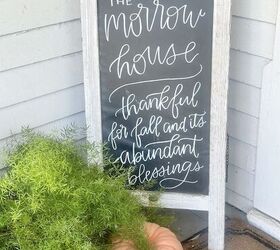 THE
morrow
house
thankful
for fall and its
abundant
blessings